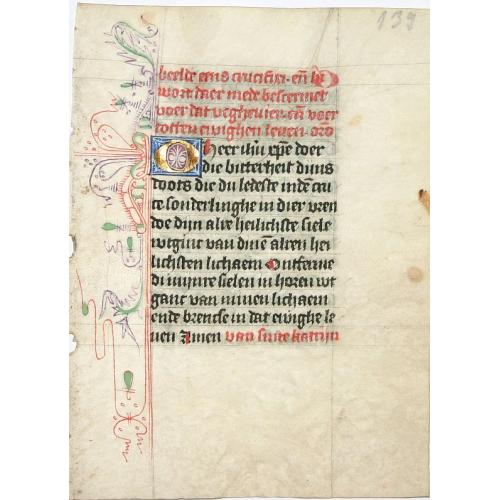 139
beelde eens crucifixi. en̄ W
wort daer mede bescermet
voer dat veghevier. en̄ voer
totten ewighen leven. oro
O heer ihu xp̄e doer
die bitterheit dijns
doots die du ledeste indē cru
ce sonderlinghe in dier vren
doe dijn alre heilichste siele
wtginc van dinē alren hei
lichsten lichaem Ontferme
di mijnre sielen in horen wt
ganc van minen lichaem
ende brencse in dat ewighe le
uen Amen van sinte katrijn